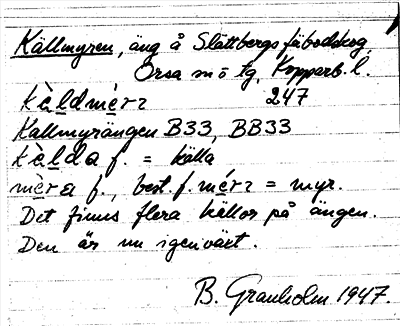 Källmyren, äng å Slättbergs fäbodskog,
Orsa sn ö tg, Kopparb. l.
kèldmèrr 247
Källmyrängen B33, BB33
kèlda f. = källa
mèra f., best. f. mérr = myr.
Det finns flera källor på ängen.
Den är nu igenväxt.
B. Granholm 1947.